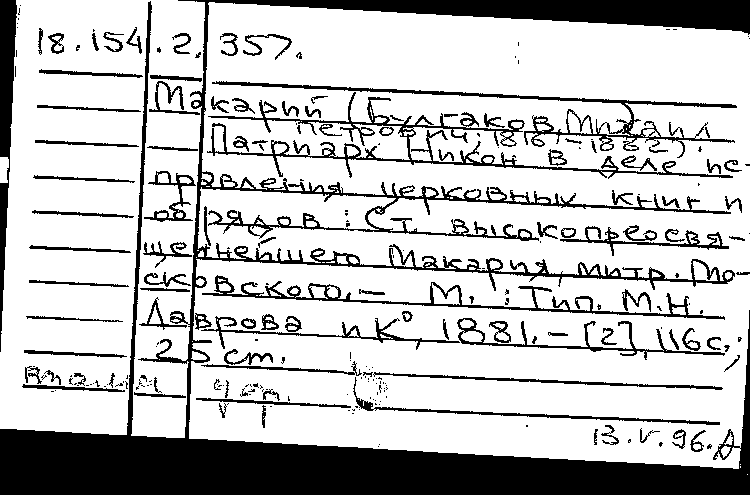 18.154.2.357.
Макарий (Булгаков, Михаил
Петрович; 1816-1882)
Патриарх Никон в деле ис-
правления церковных книг и
обрядов : Ст. высокопреосвя-
щеннейшего Макария, митр. Мо-
сковского. – М. : Тип. М.Н.
Лаврова и К°, 1881. – [2], 116 с.;
25 см.
13.V.96.